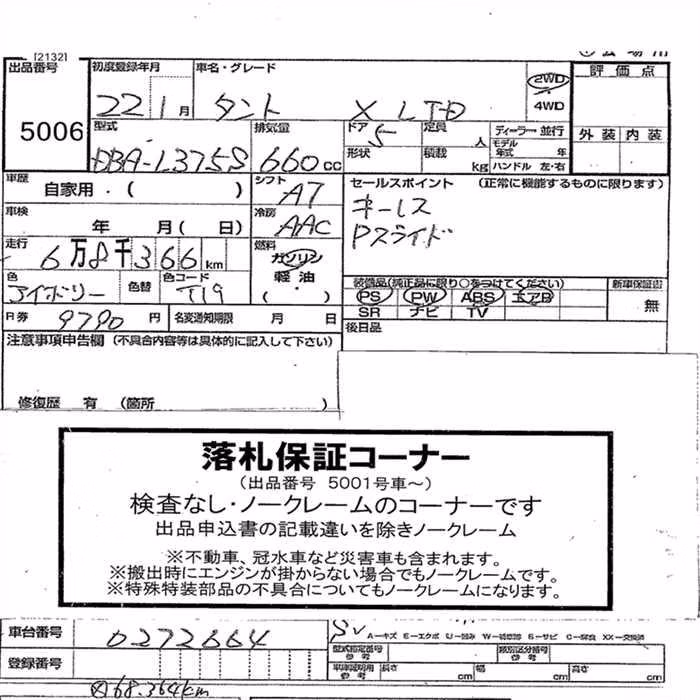 [2132]
出品番号 初度登録年月 車名・グレード 2WD 評価点
5006 22 1月 タント X LTD 4WD
型式 排気量 ドア 5 定員 人 ディーラー・並行 外装 内装
DBA-L375S 660cc 形状 積載 kg モデル年式 年 ハンドル 左・右
車歴 自家用・( ) シフト A7 セールスポイント (正常に機能するものに限ります)
車検 年 月(日) 冷房 AAC キーレス
走行 6万8千366km 燃料 ガソリン Pスライド
軽油
色 アイボリー 色替 色コード T19 (・) 装備品(純正品に限り○をつけてください) 新車保証書
PS PW ABS エアB 無
R券 9790円 名変通知期限 月 日 SR ナビ TV
注意事項申告欄 (不具合内容等は具体的に記入して下さい) 後日品
修復歴 有 (箇所 )
落札保証コーナー
(出品番号 5001号車~)
検査なし・ノークレームのコーナーです
出品申込書の記載違いを除きノークレーム
※不動車、冠水車など災害車も含まれます。
※搬出時にエンジンが掛からない場合でもノークレームです。
※特殊特装部品の不具合についてもノークレームになります。
車台番号 0272664 A-キズ E-エクボ U-凹み W-補修跡 S-サビ C-腐食 XX-交換済
登録番号 型式指定番号 参考 類別区分番号 参考
車庫証明用 参考 長さ cm 幅 cm 高さ cm
68.364km